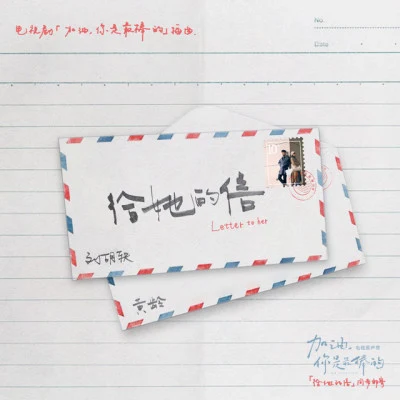 电视剧「加油，你是最棒的」插曲
No:
Date
给她的信
Letter to her
刘胡轶
黄龄
加油，
你是最棒的